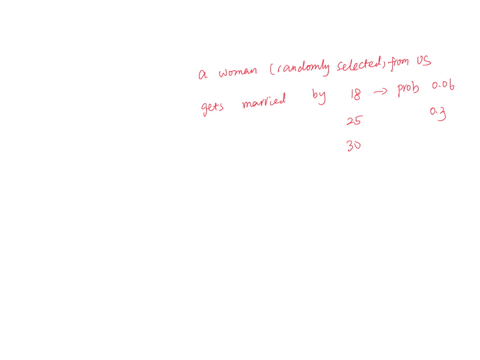 a woman (randomly selected) from US
gets married by 18 → prob 0.06
25 0.3
30